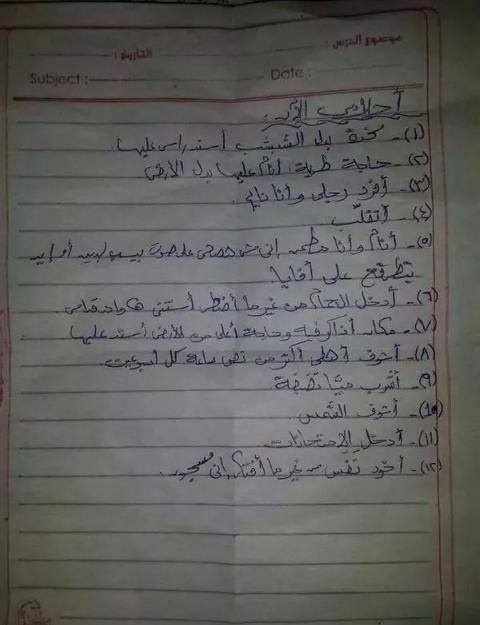 موضوع الدرس : التاريخ :
Subject : Date :
أحلامي الآن :
(١)- مخدة بدل الشبشب أسند راسي عليها
(٢)- حاجة طرية أنام عليها بدل الأرض
(٣)- أفرد رجلي وأنا نايم
(٤)- أتقلب
(٥)- أنام وأنا مطمن إني مش هصحى على صوت
تطرقع على أفايا
(٦)- أدخل الحمام من غير ما أضطر أستنى
(٧)- مكان أذاكر فيه وحاجة أعلى من الأرض أسند عليها
(٨)- أشوف أهلي أكتر من نص ساعة كل أسبوعين
(٩)- أشرب ميا نضيفة
(١٠)- أشوف الشمس
(١١)- أدخل الامتحانات
(١٢)- أخد نفس من غير ما أفتكر إني مسجون.